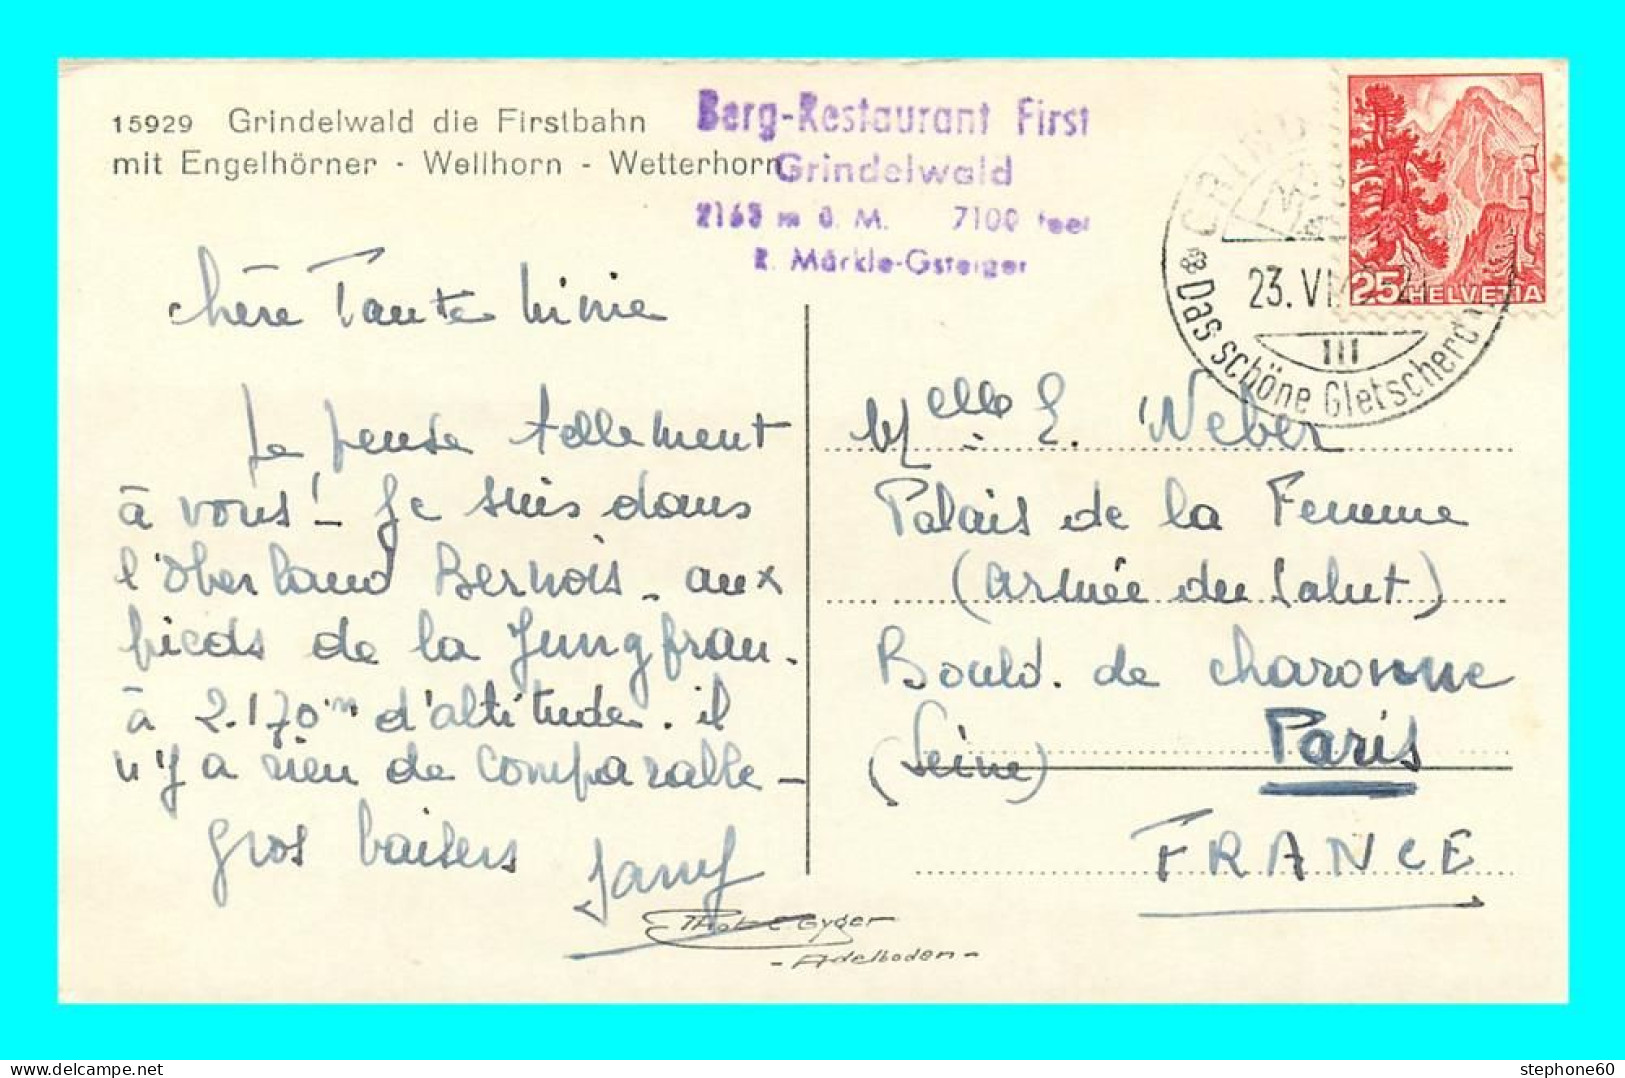 15929 Grindelwald die Firstbahn
mit Engelhörner - Wellhorn - Wetterhorn
Berg-Restaurant First
Grindelwald
2163 m ü. M. 7100 feet
Märkle-Gsteiger
25 HELVETIA
23. VI
III
Das schöne Gletscherd
chère Tante Ninie
Je pense tellement
à vous! - Je suis dans
l'Oberland Bernois - aux
pieds de la Jungfrau.
à 2.170m d'altitude. il
n'y a rien de comparable -
gros baisers
Jany
Melle E. Weber
Palais de la Femme
(Armée du Salut)
Bould. de charonne
(Seine) Paris
FRANCE
Photo E Gyger
- Adelboden -
stephone60